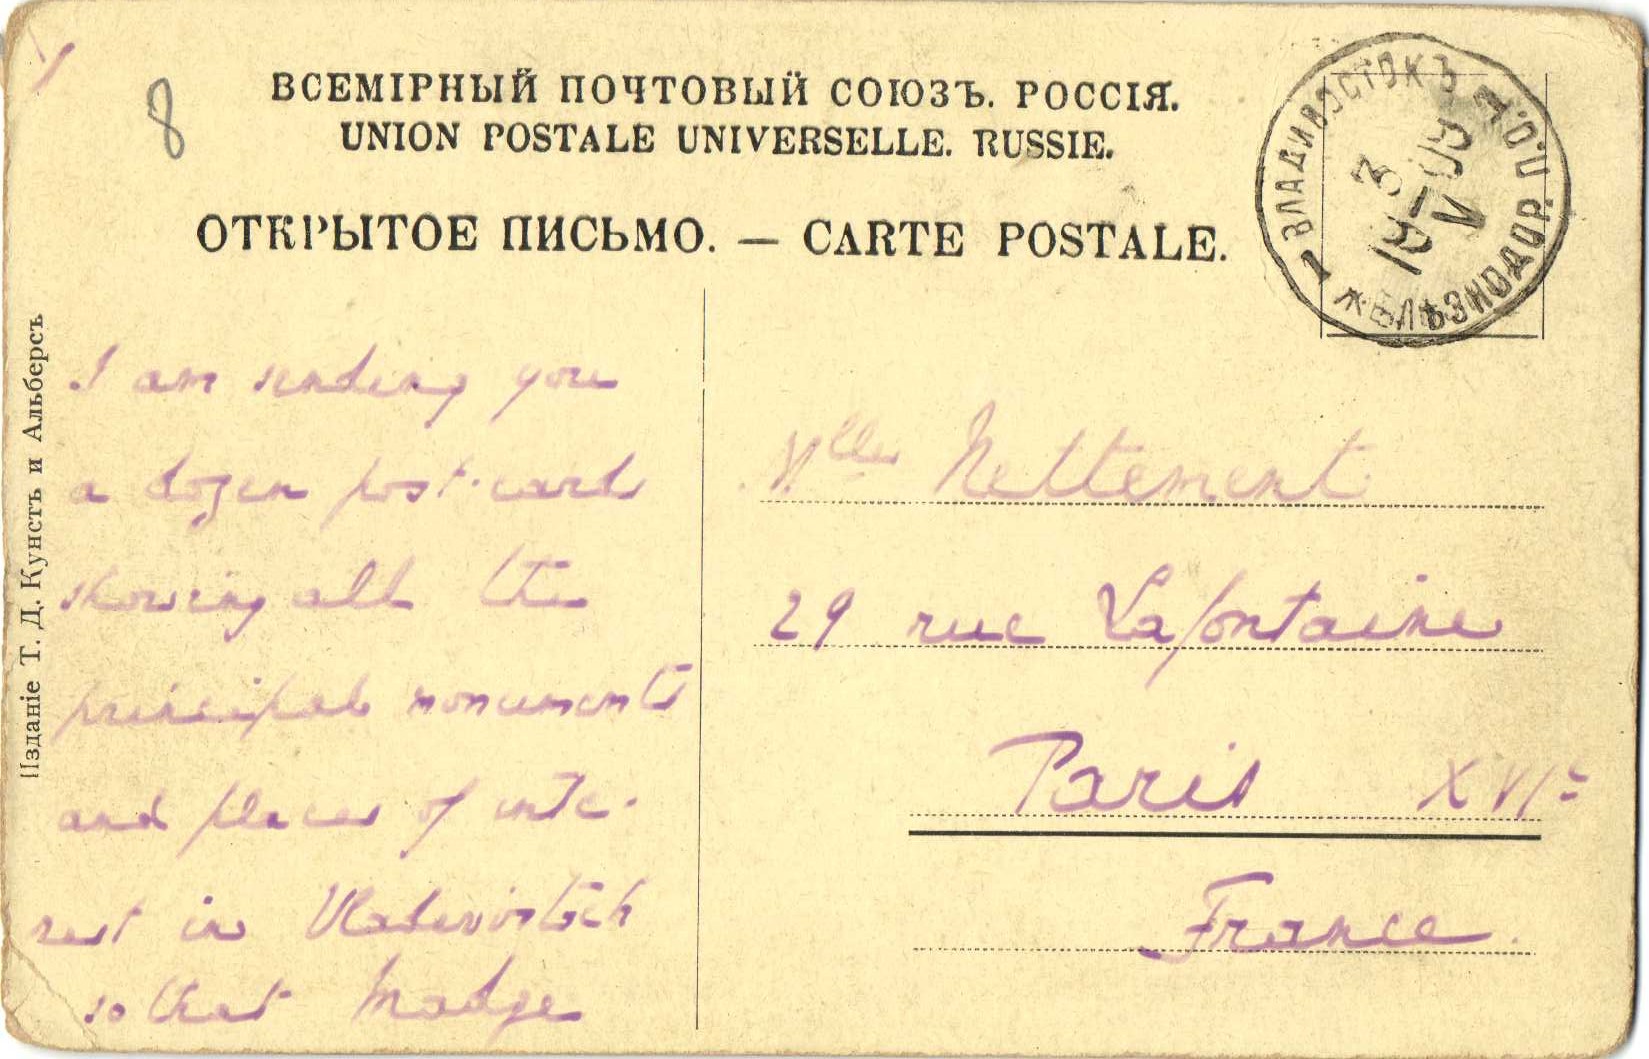 8
ВСЕМІРНЫЙ ПОЧТОВЫЙ СОЮЗЪ. РОССІЯ.
UNION POSTALE UNIVERSELLE. RUSSIE.
ОТКРЫТОЕ ПИСЬМО. — CARTE POSTALE.
ВЛАДИВОСТОКЪ
ЖЕЛѢЗНОДОР. П.О.
1
3
Изданіе Т. Д. Кунстъ и Альберсъ
I am sending you
a dozen post-cards
showing all the
principal monuments
and places of inte-
rest in Vladivostock
so that Madge
Mlle Nettement
29 rue Lafontaine
Paris XVIe
France.